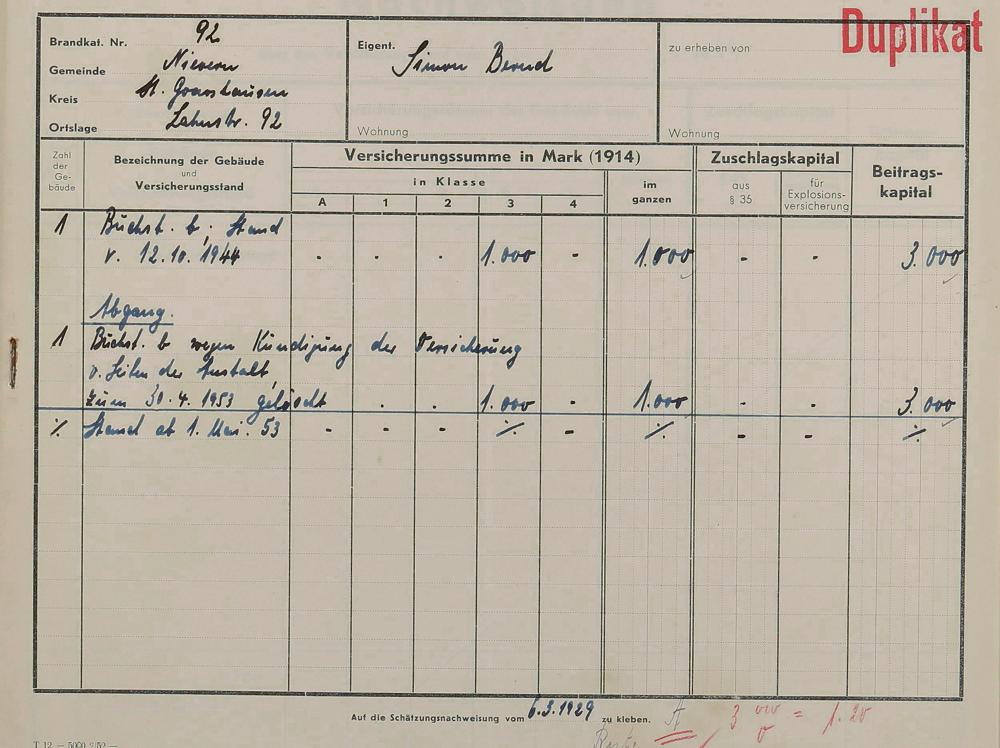 Duplikat
Brandkat. Nr. 92
Gemeinde Nievern
Kreis St. Goarshausen
Ortslage Lahnstr. 92
Eigent. Simon Bernd
Wohnung
zu erheben von
Wohnung
Zahl der Ge- bäude
Bezeichnung der Gebäude
und
Versicherungsstand
Versicherungssumme in Mark (1914)
in Klasse
A 1 2 3 4
im ganzen
Zuschlagskapital
aus § 35
für Explosions- versicherung
Beitrags- kapital
1 Buchst. b, Stand
v. 12.10.1944 - - - 1.000 - 1.000 - - 3.000
Abgang.
1 Buchst. b wegen Kündigung der Versicherung
v. Seiten der Anstalt
zum 30.4.1953 gelöscht - - 1.000 - 1.000 - - 3.000
% Stand ab 1. Mai. 53 - - - % - % - - %
Auf die Schätzungsnachweisung vom 6.3.1929 zu kleben.
= 1.20
T 12 — 5000 2/52 —